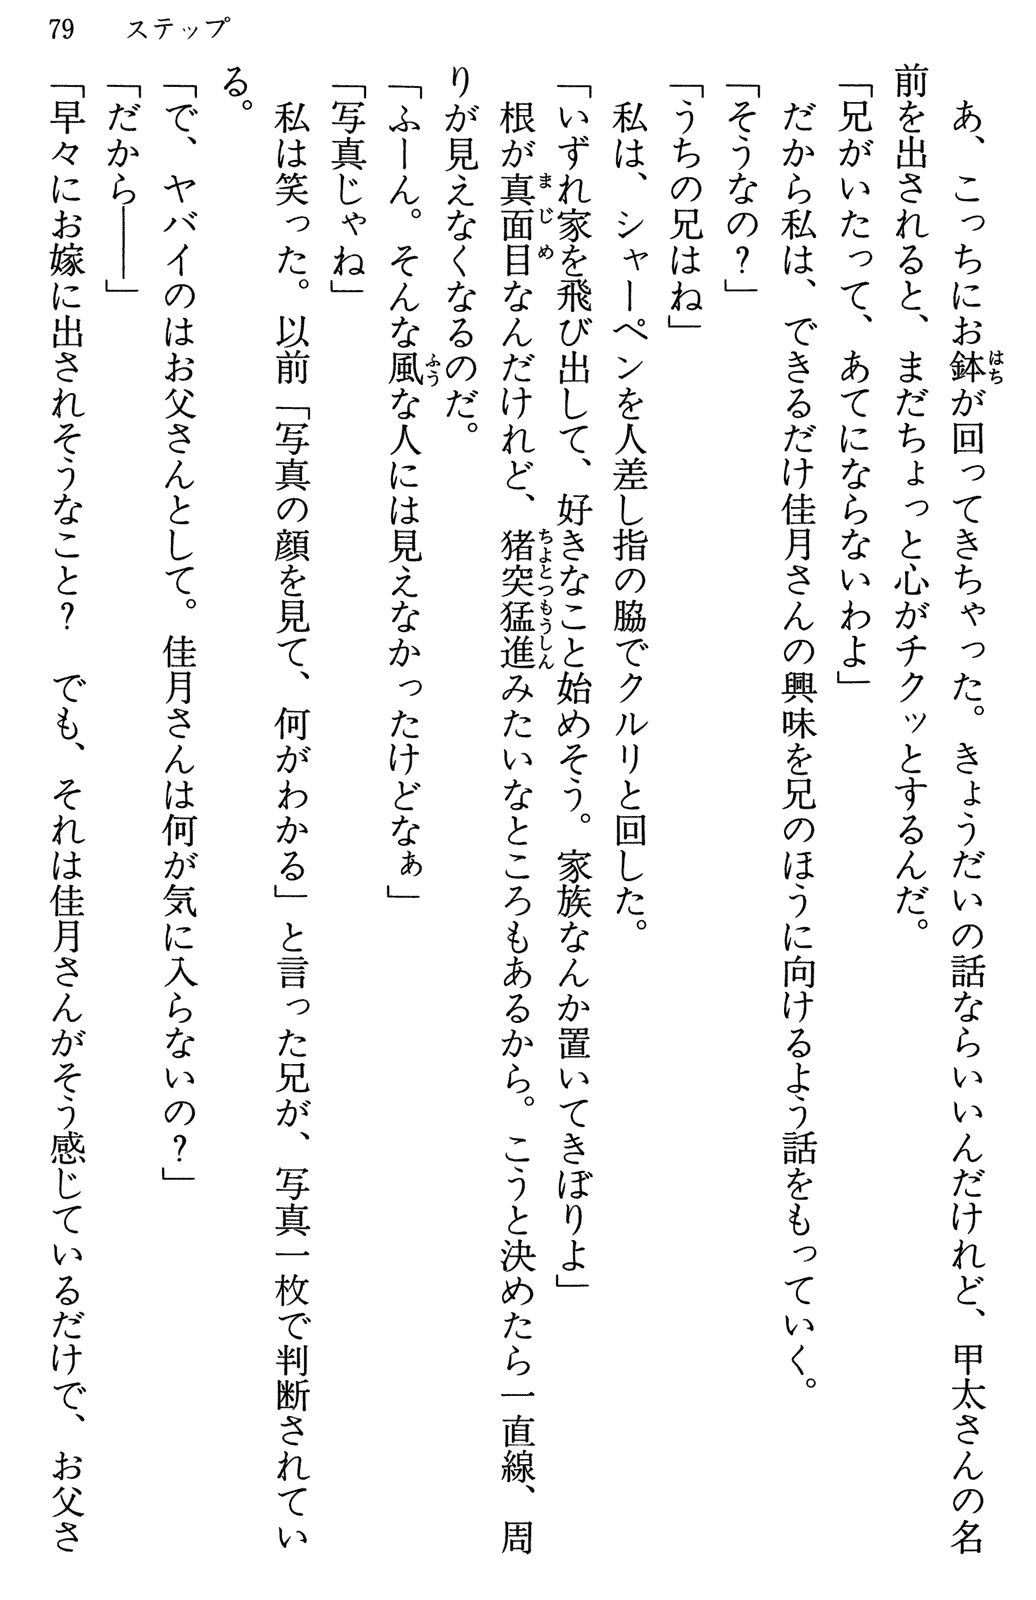 79　ステップ
あ、こっちにお鉢が回ってきちゃった。きょうだいの話ならいいんだけれど、甲太さんの名
前を出されると、まだちょっと心がチクッとするんだ。
「兄がいたって、あてにならないわよ」
だから私は、できるだけ佳月さんの興味を兄のほうに向けるよう話をもっていく。
「そうなの？」
「うちの兄はね」
私は、シャーペンを人差し指の脇でクルリと回した。
「いずれ家を飛び出して、好きなこと始めそう。家族なんか置いてきぼりよ」
根が真面目なんだけれど、猪突猛進みたいなところもあるから。こうと決めたら一直線、周
りが見えなくなるのだ。
「ふーん。そんな風な人には見えなかったけどなぁ」
「写真じゃね」
私は笑った。以前「写真の顔を見て、何がわかる」と言った兄が、写真一枚で判断されてい
る。
「で、ヤバイのはお父さんとして。佳月さんは何が気に入らないの？」
「だから――」
「早々にお嫁に出されそうなこと？　でも、それは佳月さんがそう感じているだけで、お父さ